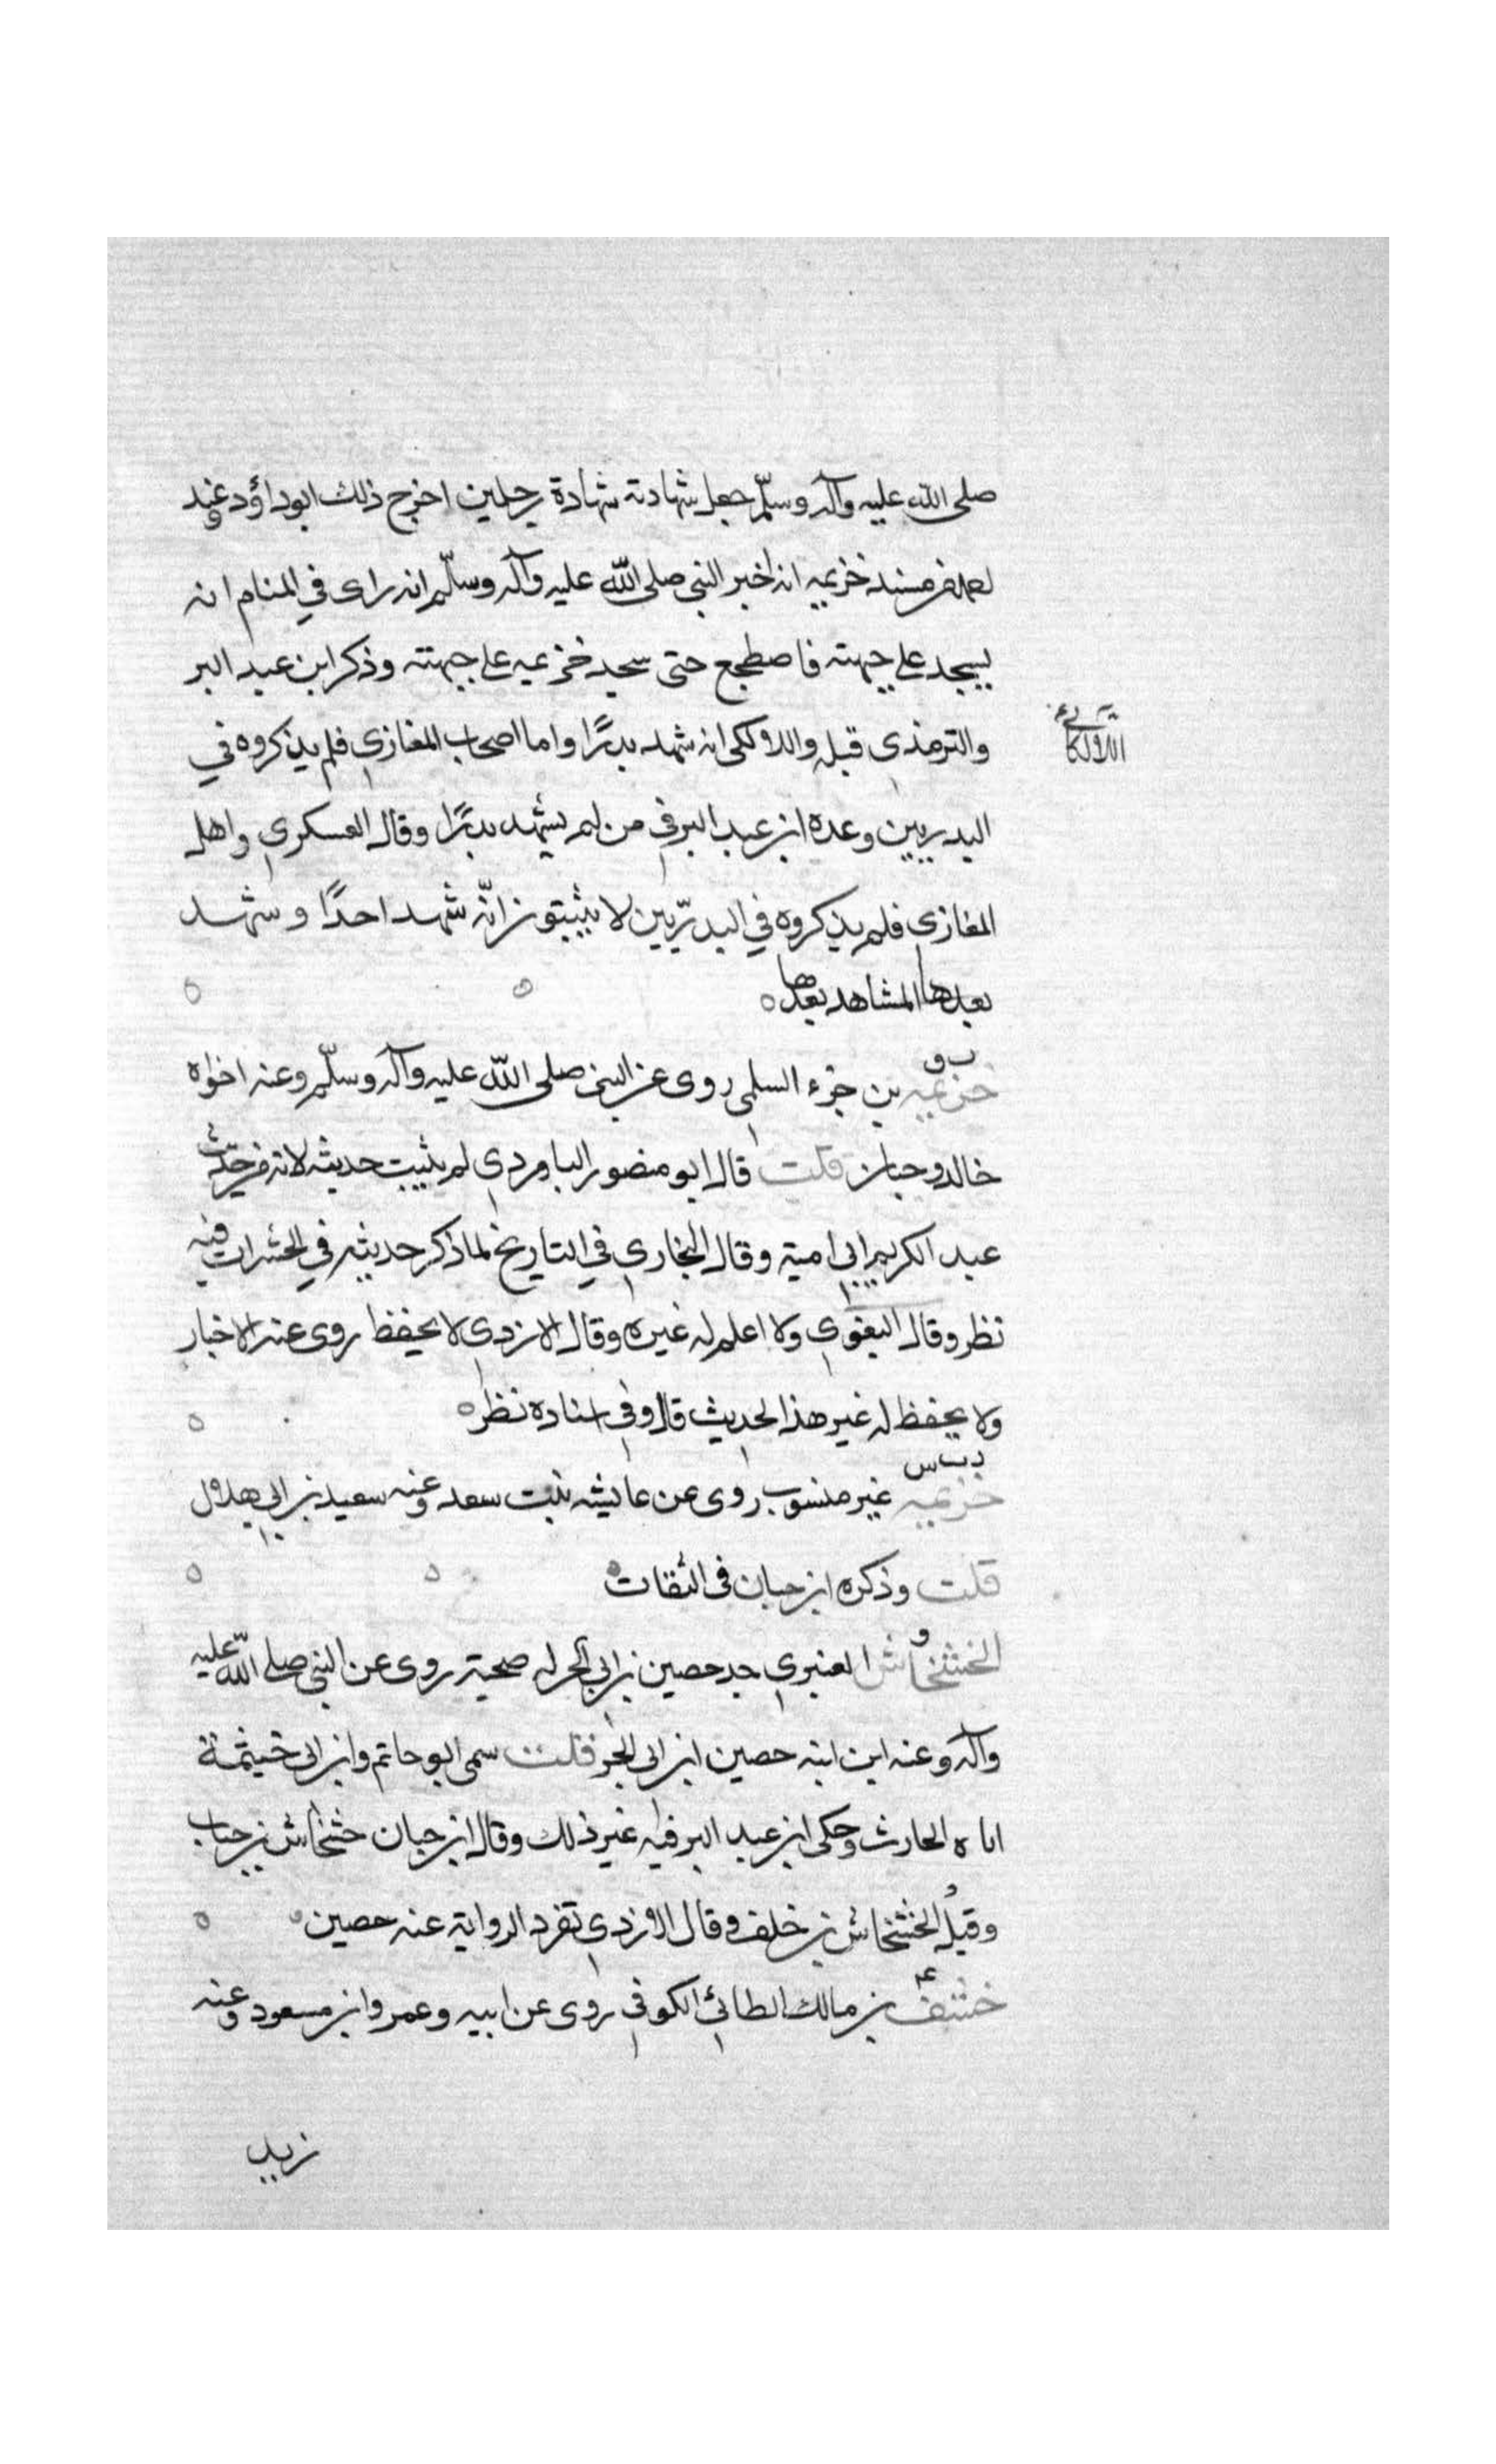 صلى الله عليه وآله وسلّم جعل شهادته شهادة رجلين اخرج ذلك ابوداؤد وعند
من مسند خزيمه انه اخبر النبي صلى الله عليه وآله وسلّم انه راى في المنام انه
يسجد على جبهته فاضطجع حتى سجد خزيمه على جبهته وذكر ابن عبد البر
والترمذي قبله واللالكى انه شهد بدرًا واما اصحاب المغازي فلم يذكروه في
اللالكائي
البدريين وعده ابن عبد البر في من لم يشهد بدرًا وقال العسكري واهل
المغازي فلم يذكروه في البدرّيين لا يثبتون انّه شهد احدًا وشهد
بعدها المشاهد بعدها
ب ق
خزيمه بن جزء السلمي روى عن النبي صلى الله عليه وآله وسلّم وعنه اخواه
خالد وحبان قلت قال ابو منصور الباوردي لم يثبت حديثه لانه من حديث
عبد الكريم ابي امية وقال البخاري في التاريخ لما ذكر حديثه في الحشرات فيه
نظر وقال البغوي ولا اعلم له غيره وقال الازدي لا يحفظ روى عنه الاخبار
ولا يحفظ له غير هذا الحديث قال وفي اسناده نظر
د ت س
خزيمه غير منسوب روى عن عايشه بنت سعد وعنه سعيد بن ابي هلال
قلت وذكره ابن حبان فى الثقات
الخشخاش العنبري جد حصين بن ابي الحر له صحبة روى عن النبي صلى الله عليه
وآله وعنه ابن ابنه حصين ابن ابي الحر قلت سمى ابو حاتم وابن ابى خيثمة
اباه الحارث وحكى ابن عبد البر فيه غير ذلك وقال ابن حبان خشخاش بن حباب
وقيل الخشخاش بن خلف وقال الازدي تفرد الرواية عنه حصين
خشف بن مالك الطائي الكوفي روى عن ابيه وعمر وابن مسعود وعنه
زيد